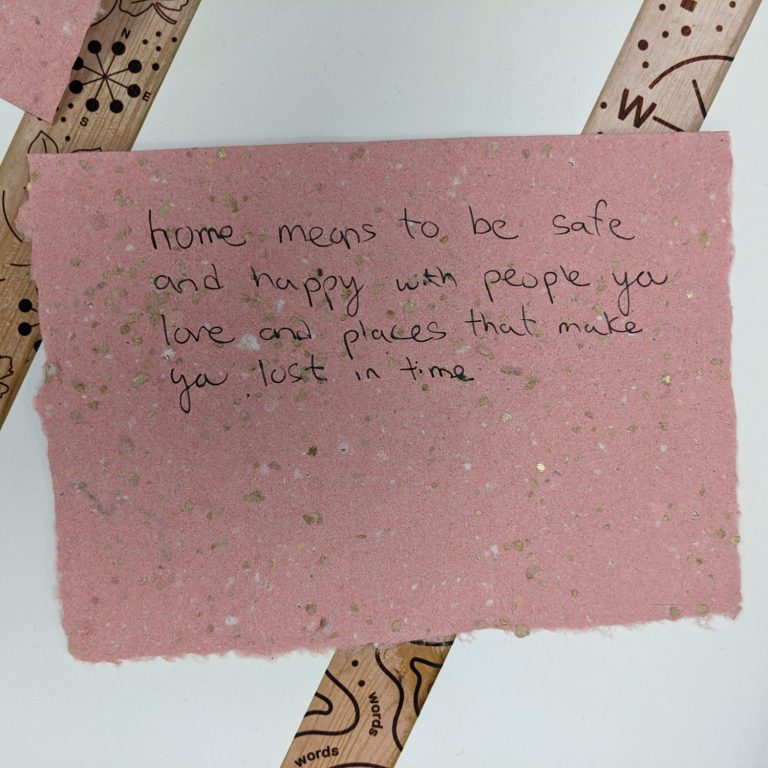 N
E
S
W
home means to be safe
and happy with people ya
love and places that make
ya lost in time
words
words